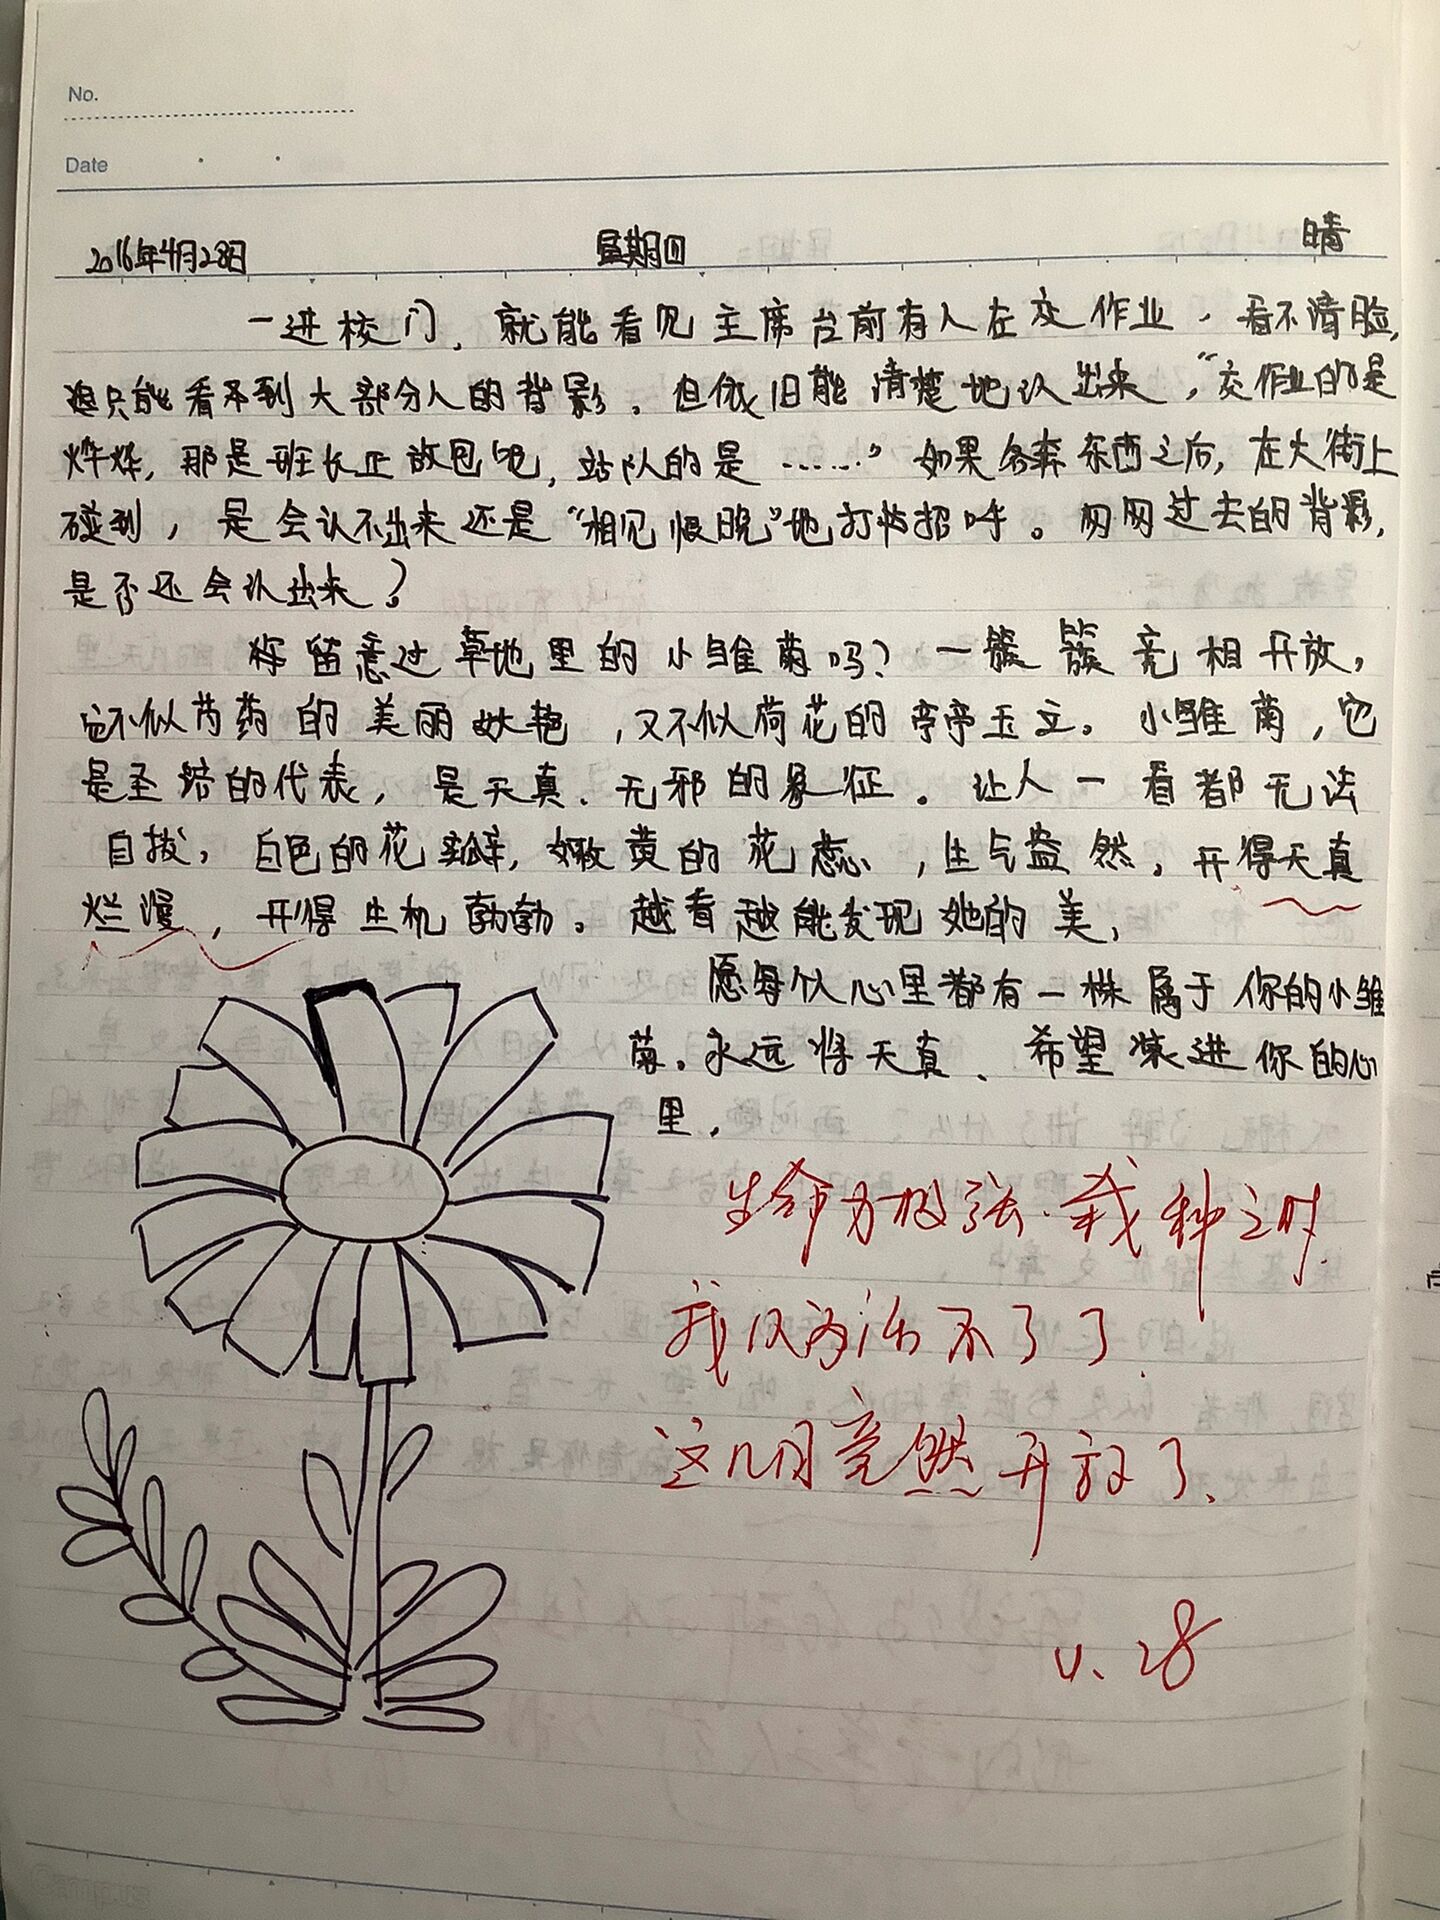 No.
Date
2016年4月28日 星期四 晴
一进校门，就能看见主席台前有人在交作业，看不清脸，
只能看到大部分人的背影。但依旧能清楚地认出来，“交作业的是
烨烨，那是班长正放包呢，站队的是……”如果各奔东西之后，在大街上
碰到，是会认不出来还是“相见恨晚”地打招呼。匆匆过去的背影，
是否还会认出来？
你留意过草地里的小雏菊吗？一簇簇竞相开放，
它不似芍药的美丽妖艳，又不似荷花的亭亭玉立。小雏菊，它
是圣洁的代表，是天真、无邪的象征。让人一看都无法
自拔，白色的花瓣，嫩黄的花蕊，生气盎然。开得天真
烂漫，开得生机勃勃。越看越能发现她的美，
愿每个人心里都有一株属于你的小雏
菊。永远将天真、希望滚进你的心
里，
生命力极强.栽种之时.
我以为活不了了.
这几月竞然开放了.
4.28